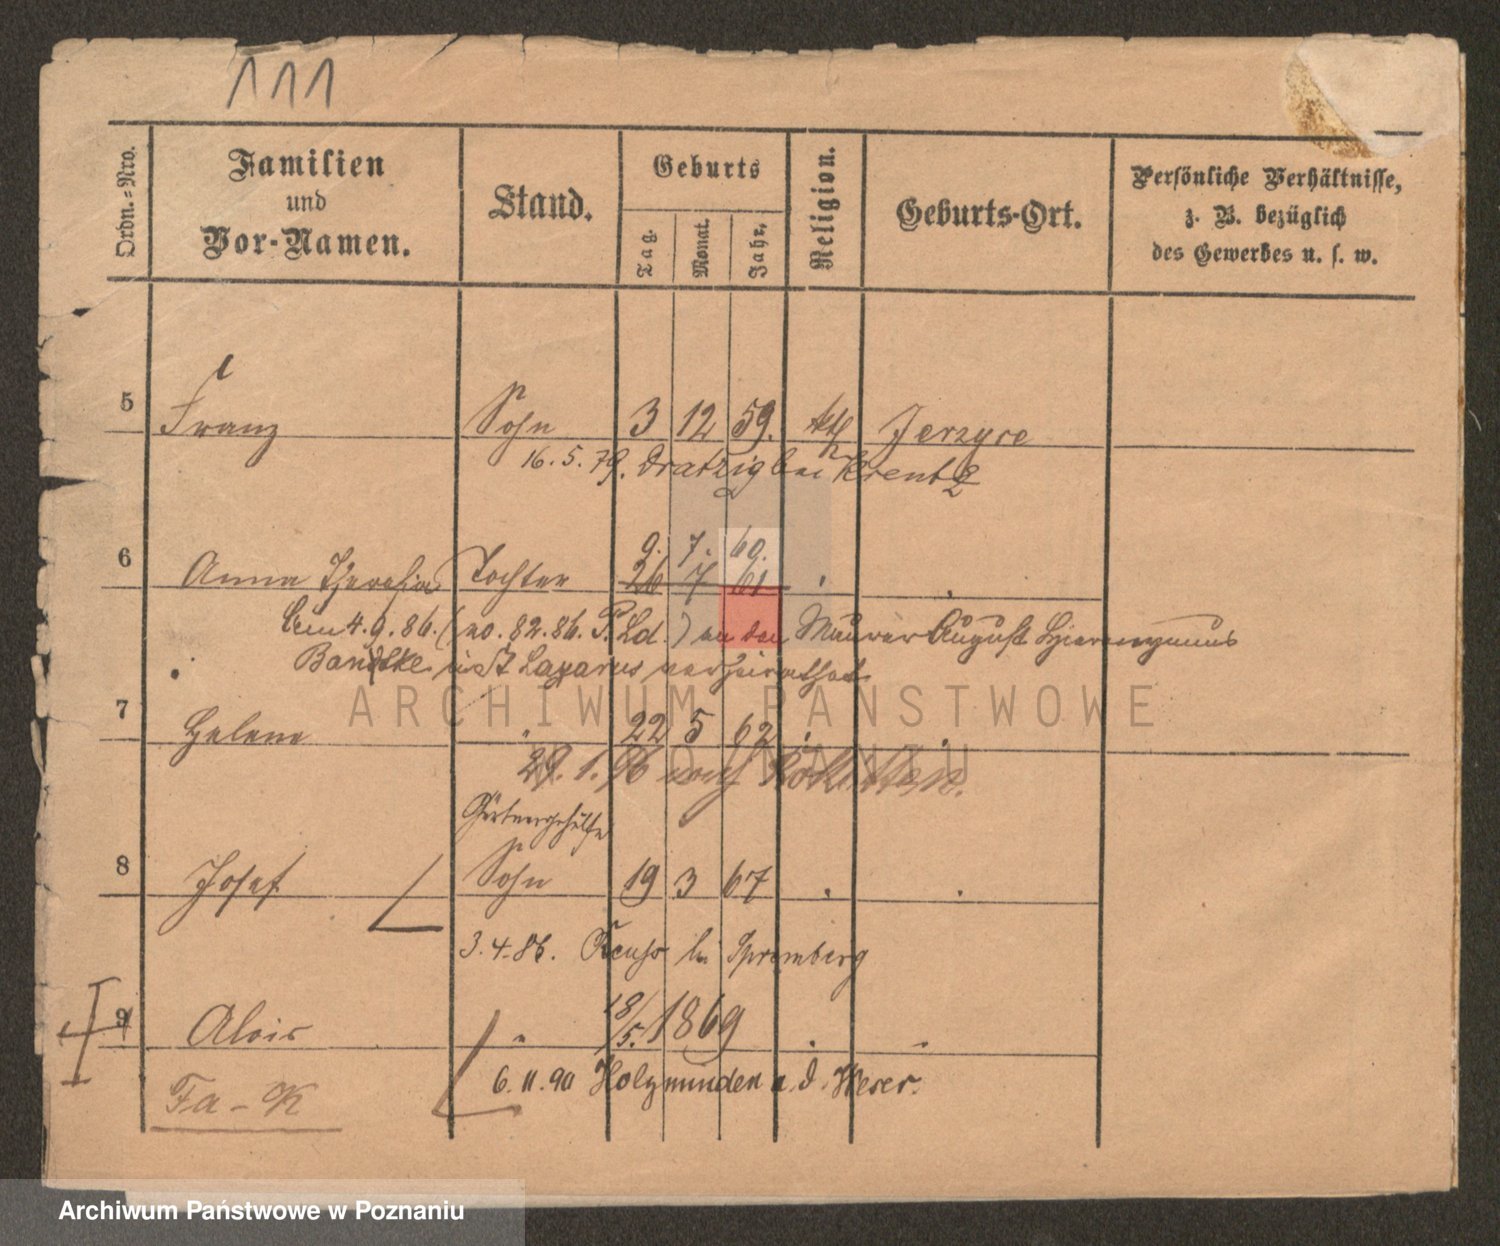 111
Ordn.-Nro.
Familien
und
Vor-Namen.
Stand.
Geburts
Tag.
Monat.
Jahr.
Religion.
Geburts-Ort.
Persönliche Verhältnisse,
z. B. bezüglich
des Gewerbes u. s. w.
5 Franz Sohn 3 12 59. kth Jerzyce
16. 5. 79. Dratzig bei Kreutz
9. 7. 60.
6 Anna Theresia Tochter 26 7 61 "
am 4.9.86. (no. 82.86. P. Ld.) an den Maurer August Hieronymus
Bandtke in St Lazarus verheirathet
7 Helene " 22 5 62 . .
29. 1. 96 nach
Gärtnergehülfe
8 Josef Sohn 19 3 67 . .
3. 4. 86. bei Spremberg
9 Alois " 18/5. 1869 . "
6. 11. 90 Holzminden a. d. Weser.
Fa - K
ARCHIWUM PAŃSTWOWE
W POZNANIU
Archiwum Państwowe w Poznaniu